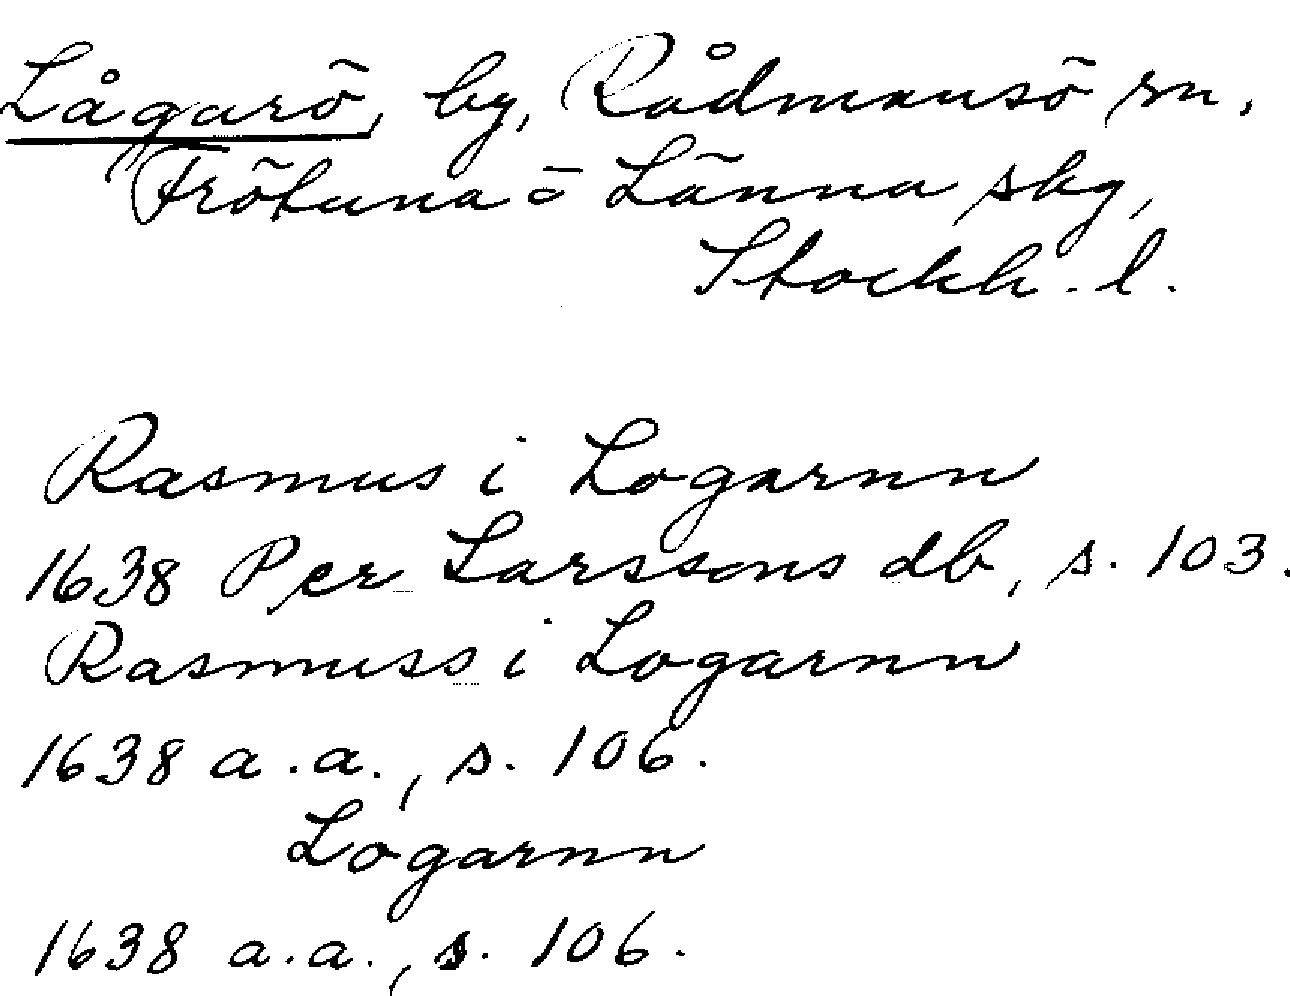 Lågarö, by, Rådmansö sn,
Frötuna o Länna skg,
Stockh. l.
Rasmus i Logarnn
1638 Per Larssons db, s. 103.
Rasmuss i Logarnn
1638 a.a., s. 106.
Logarnn
1638 a.a., s. 106.